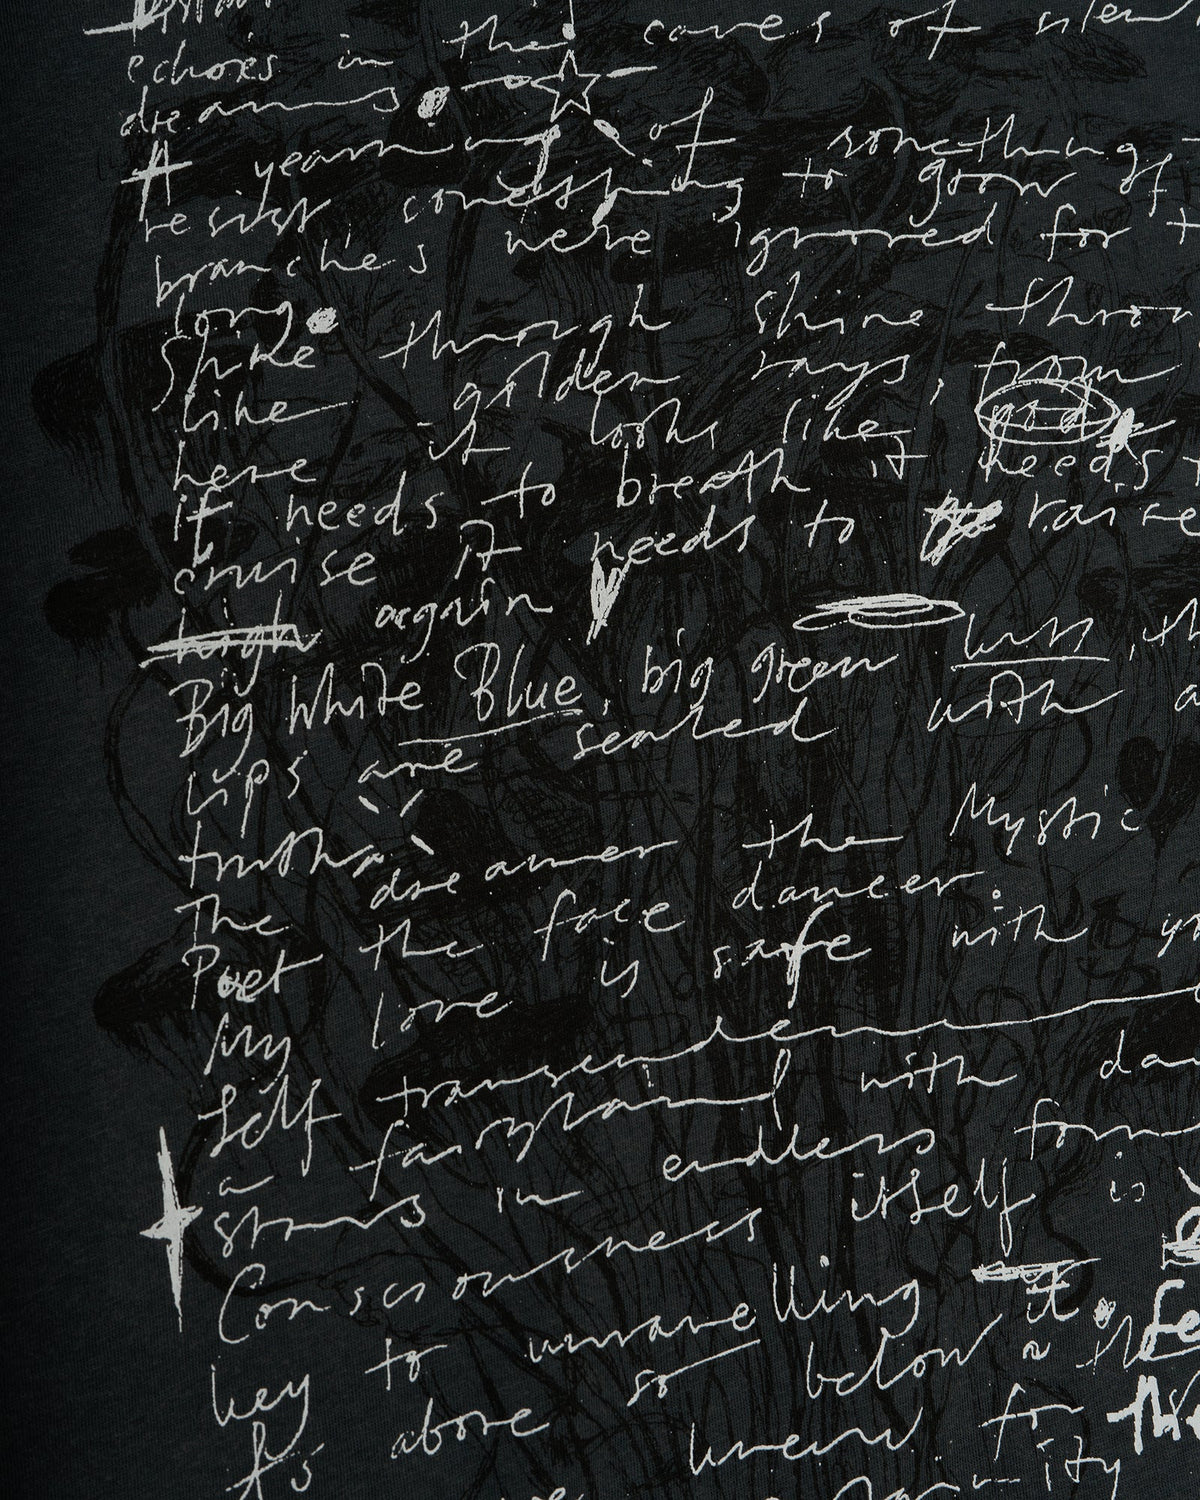 echoes in the caves of silen
dreams
A yearning of something
resist something to grow of
branches were ignored for t
long
Shine through shine throu
like golden rays, from
here it looks like god
it needs to breath it needs
cruise it needs to raise
high again
Big White Blue big green
lips are sealed with a
truths
The dreamer the Mystic
Poet the face dancer.
My love is safe with yo
Self
a fairyland with dan
stars in endless form
Consciousness itself is
key to unravelling it.
As above so below
for